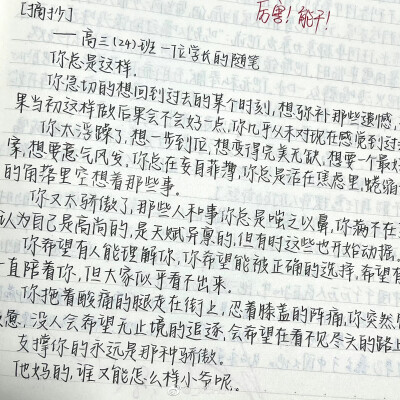 [摘抄]
厉害!能干!
——高三(24)班一位学长的随笔
你总是这样.
你急切的想回到过去的某个时刻,想弥补那些遗憾,
果当初这样做后果会不会好一点,你几乎从未对现在感觉到过
你太浮躁了,想一步到位,想变得完美无缺,想要一个最好
案,想要意气风发,你总在妄自菲薄,你总是活在焦虑里,蜷缩
的角落里空想着那些事.
你又太骄傲了,那些人和事你总是嗤之以鼻,你满不在
认为自己是高尚的,是天赋异禀的,但有时这些也开始动摇.
你希望有人能理解你,你希望能被正确的选择,希望有
一直陪着你,但大家似乎看不出来.
你拖着酸痛的腿走在街上,忍着膝盖的阵痛,你突然
愿,没人会希望无止境的追逐,会希望在看不见尽头的路上
支撑你的永远是那种骄傲.
他妈的,谁又能怎么样小爷呢.